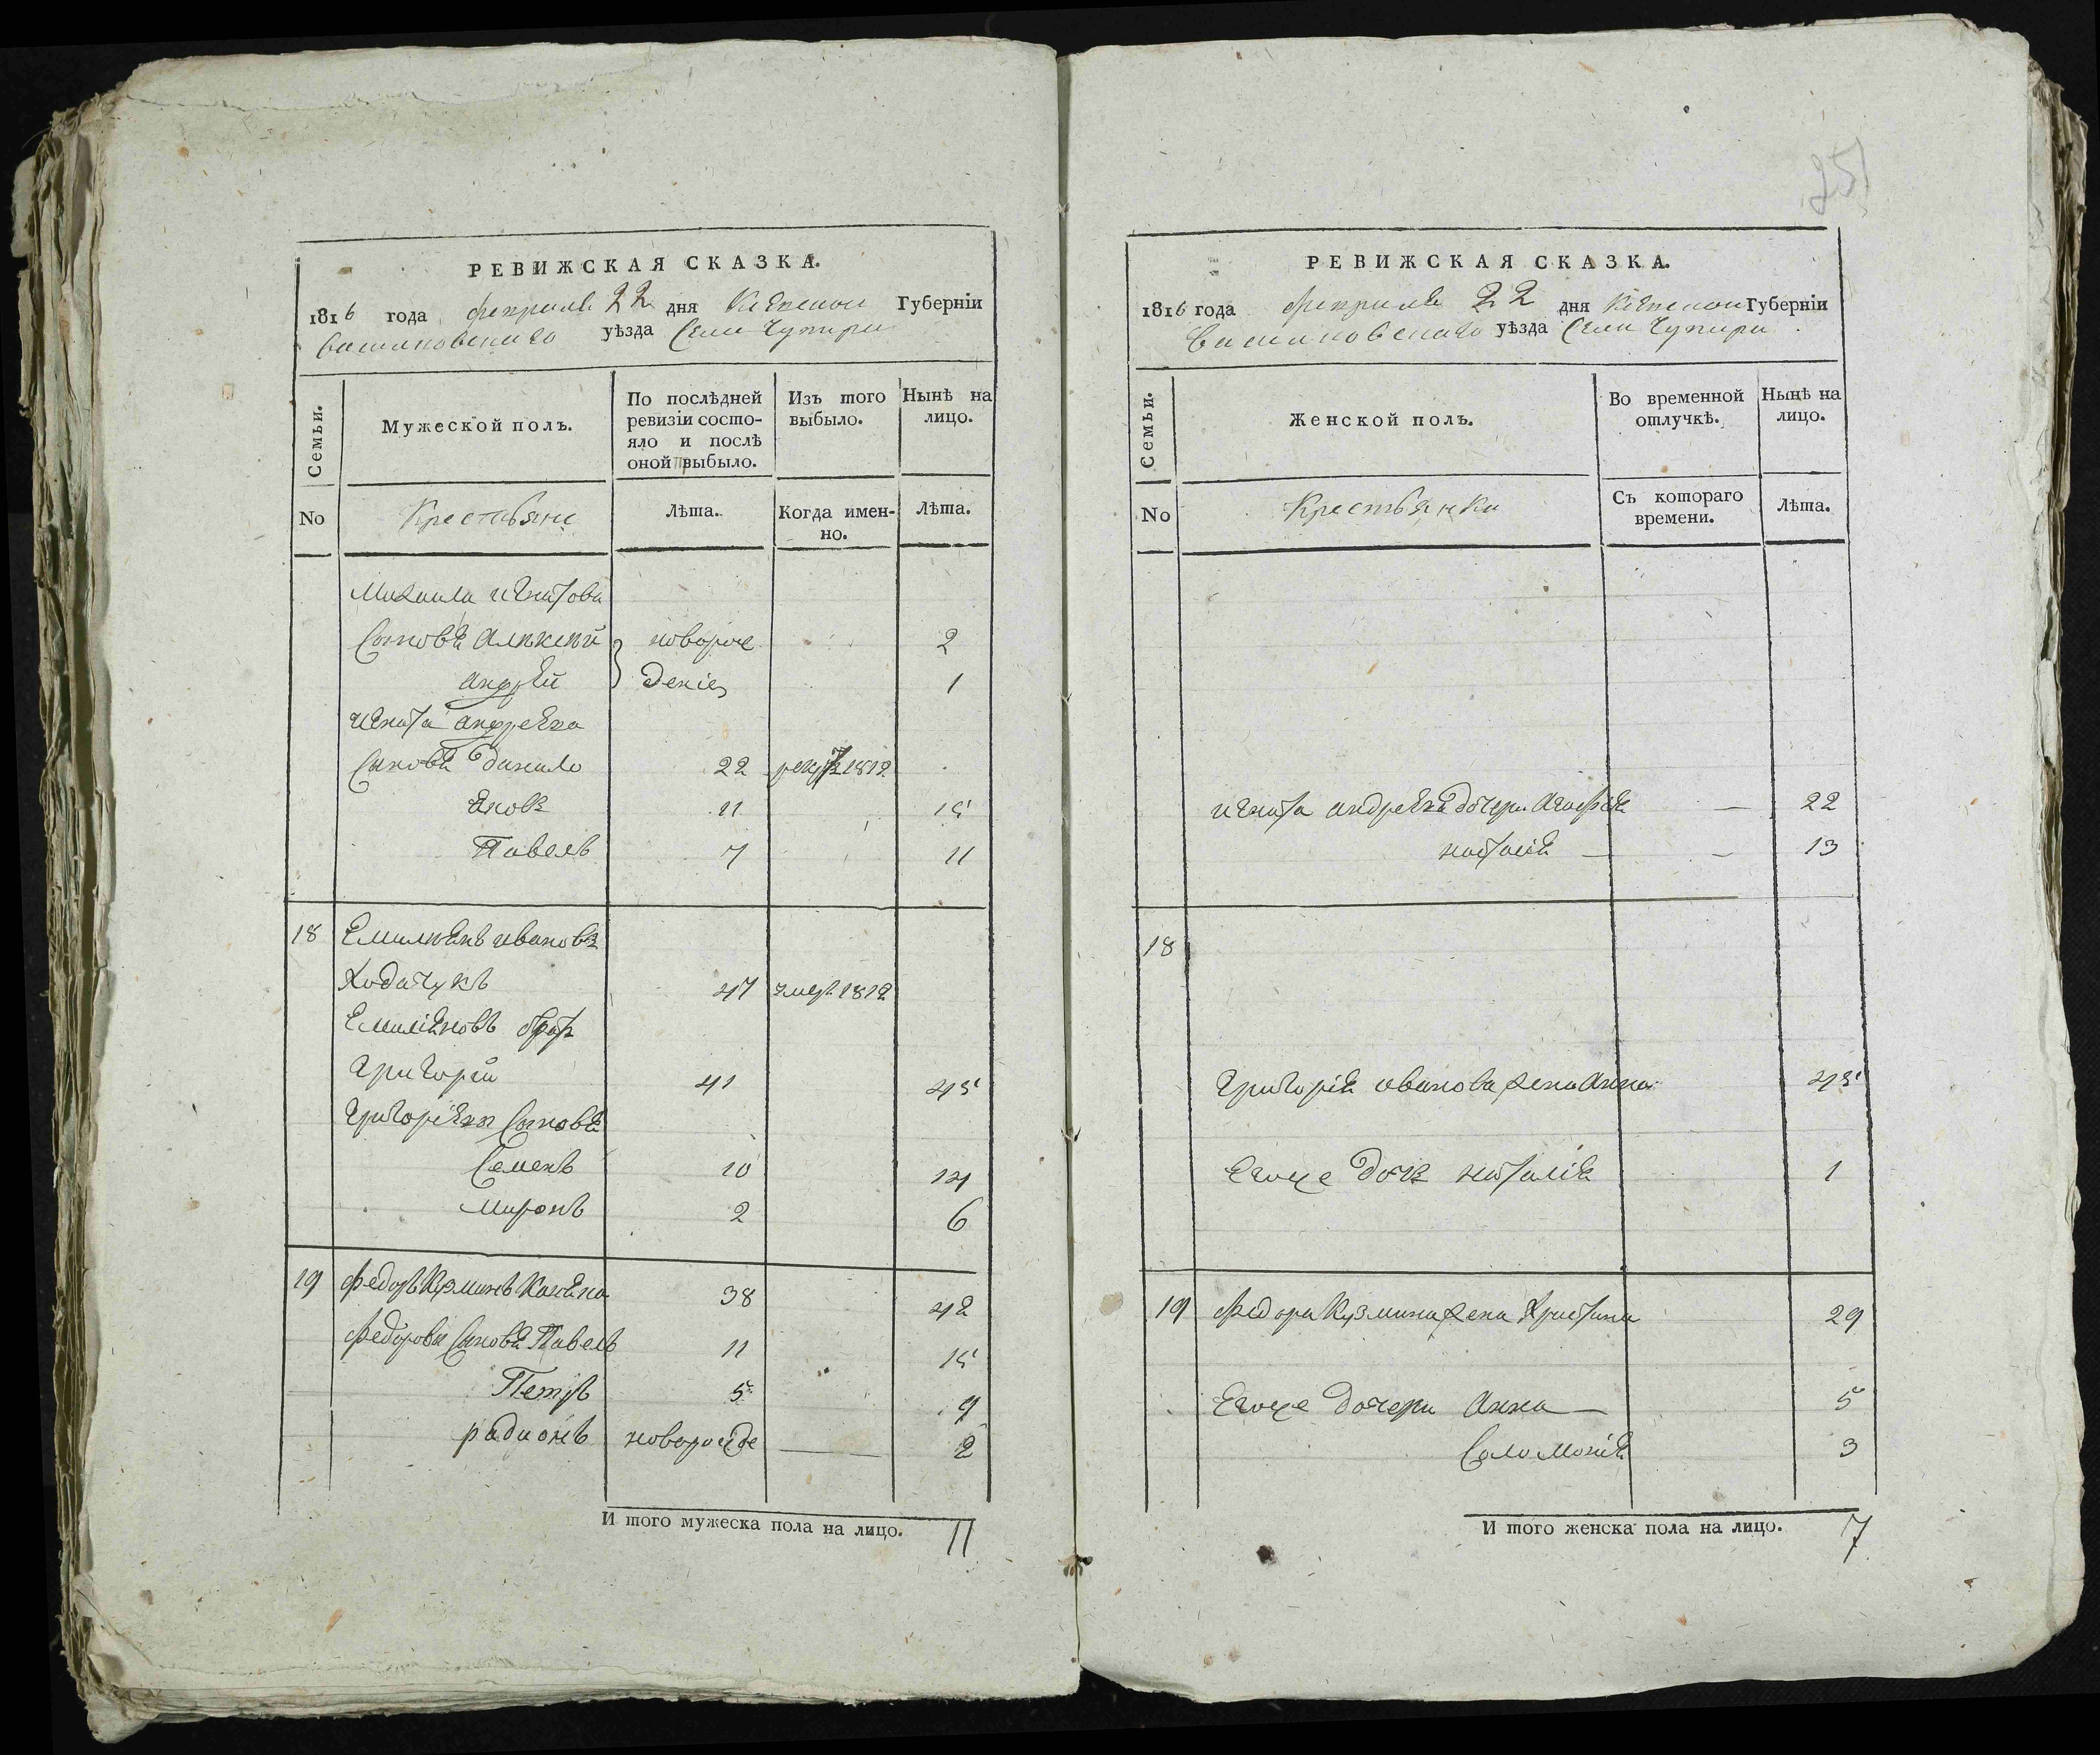 РЕВИЖСКАЯ СКАЗКА.
1816 года февраля 22 дня Киевской Губерніи
Василковскаго уѣзда Села Чупири
Семьи.
Мужеской полъ.
По послѣдней ревизіи состо-
яло и послѣ
оной выбыло.
Изъ того
выбыло.
Нынѣ на
лицо.
No
Крестьяне
Лѣта.
Когда имен-
но.
Лѣта.
Михаила игнатова
Сыновя Алексѣй новорож 2
андрѣй дение 1
игната андреева
Сыновя данило 22 рекрут 1812
Яковъ 11 15
Павелъ 7 11
18 Емилиянъ ивановъ
Ходачукъ 47 умер 1812
Емилияновъ брат
Григорій 41 45
Григориева Сыновя
Семенъ 10 14
миронъ 2 6
19 Федоръ Кузминъ 38 42
Федорова Сыновя Павелъ 11 15
Петръ 5 9
радионъ новорожде 2
И того мужеска пола на лицо. 11
25
РЕВИЖСКАЯ СКАЗКА.
1816 года февраля 22 дня Киевской Губерніи
Василковскаго уѣзда Села Чупири
Семьи.
Женской полъ.
Во временной
отлучкѣ.
Нынѣ на
лицо.
No
Крестьянки
Съ котораго
времени.
Лѣта.
игната андреева дочери Агафия — 22
наталия — — 13
18
Григория иванова жена Анна 45
Егоже дочь наталия 1
19 Федора Кузмина жена Христина 29
Егоже дочери Анна — 5
Соломония 3
И того женска пола на лицо. 7